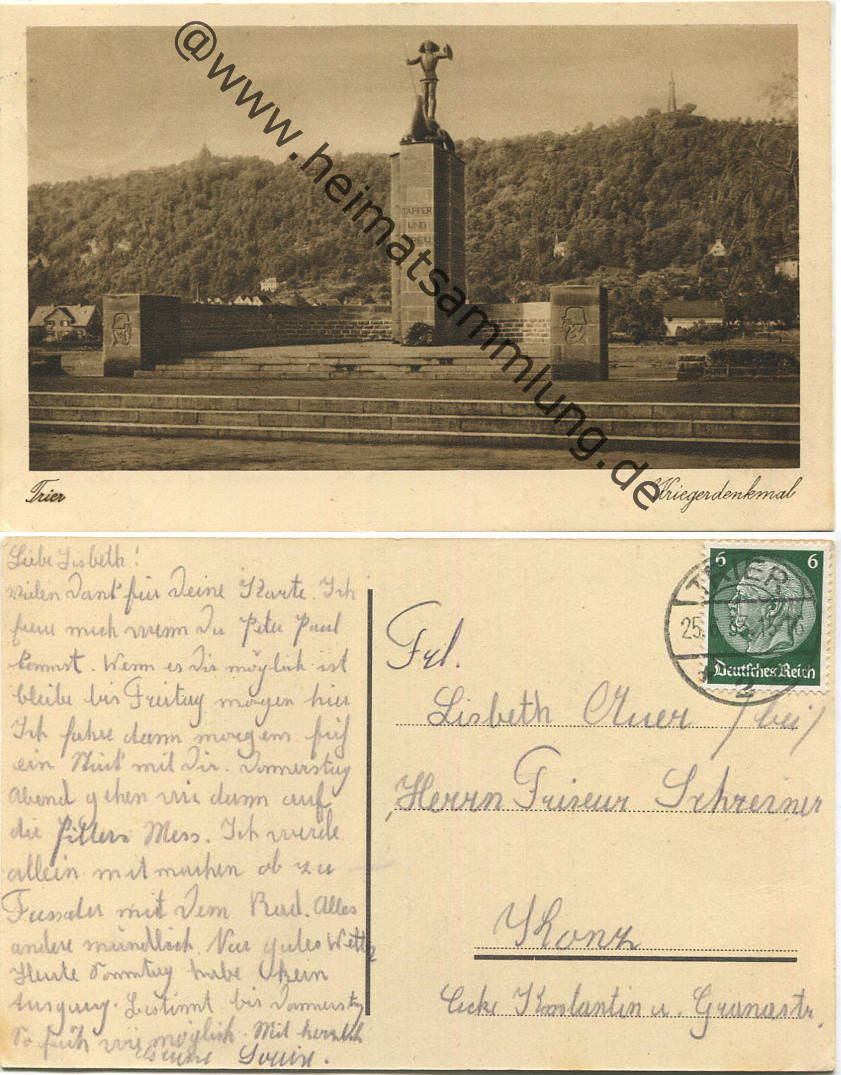 @www.heimatsammlung.de
TAPFER
UND
TREU
Trier
Kriegerdenkmal
Liebe Lisbeth!
Vielen Dank für Deine Karte. Ich
freue mich wenn Du Peter Paul
kommst. Wenn es Dir möglich ist
bleibe bis Freitag morgen hier
Ich fahre dann morgens früh
ein Stück mit Dir. Donnerstag
Abend gehen wir dann auf
die Mess. Ich werde
allein mitmachen ob zu
Fuss oder mit dem Rad. Alles
andere mündlich. Nur gutes Wetter
Heute Sonntag habe ich kein
Ausgang. Bestimmt bis Donnerstag
So früh wie möglich. Mit herzlich
Louise.
6 6
Deutsches Reich
TRIER
25.
2
Frl.
Lisbeth Auer /bei/
Herrn Friseur Schreiner
Konz
Ecke Konstantin u. Granastr.